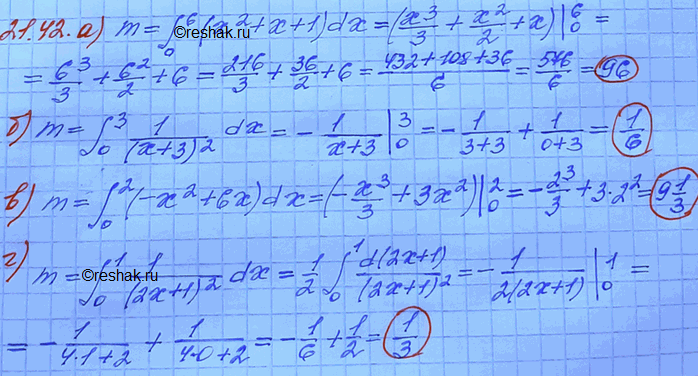 21.42. а) m = ∫₀⁶ (x² + x + 1) dx = (x³/3 + x²/2 + x) |₀⁶ =
= 6³/3 + 6²/2 + 6 = 216/3 + 36/2 + 6 = (432 + 108 + 36)/6 = 576/6 = 96
б) m = ∫₀³ 1/(x+3)² dx = - 1/(x+3) |₀³ = - 1/(3+3) + 1/(0+3) = 1/6
в) m = ∫₀² (-x² + 6x) dx = (- x³/3 + 3x²) |₀² = - 2³/3 + 3·2² = 9 1/3
г) m = ∫₀¹ 1/(2x+1)² dx = 1/2 ∫₀¹ d(2x+1)/(2x+1)² = - 1/(2(2x+1)) |₀¹ =
= - 1/(4·1+2) + 1/(4·0+2) = - 1/6 + 1/2 = 1/3
©reshak.ru
©reshak.ru